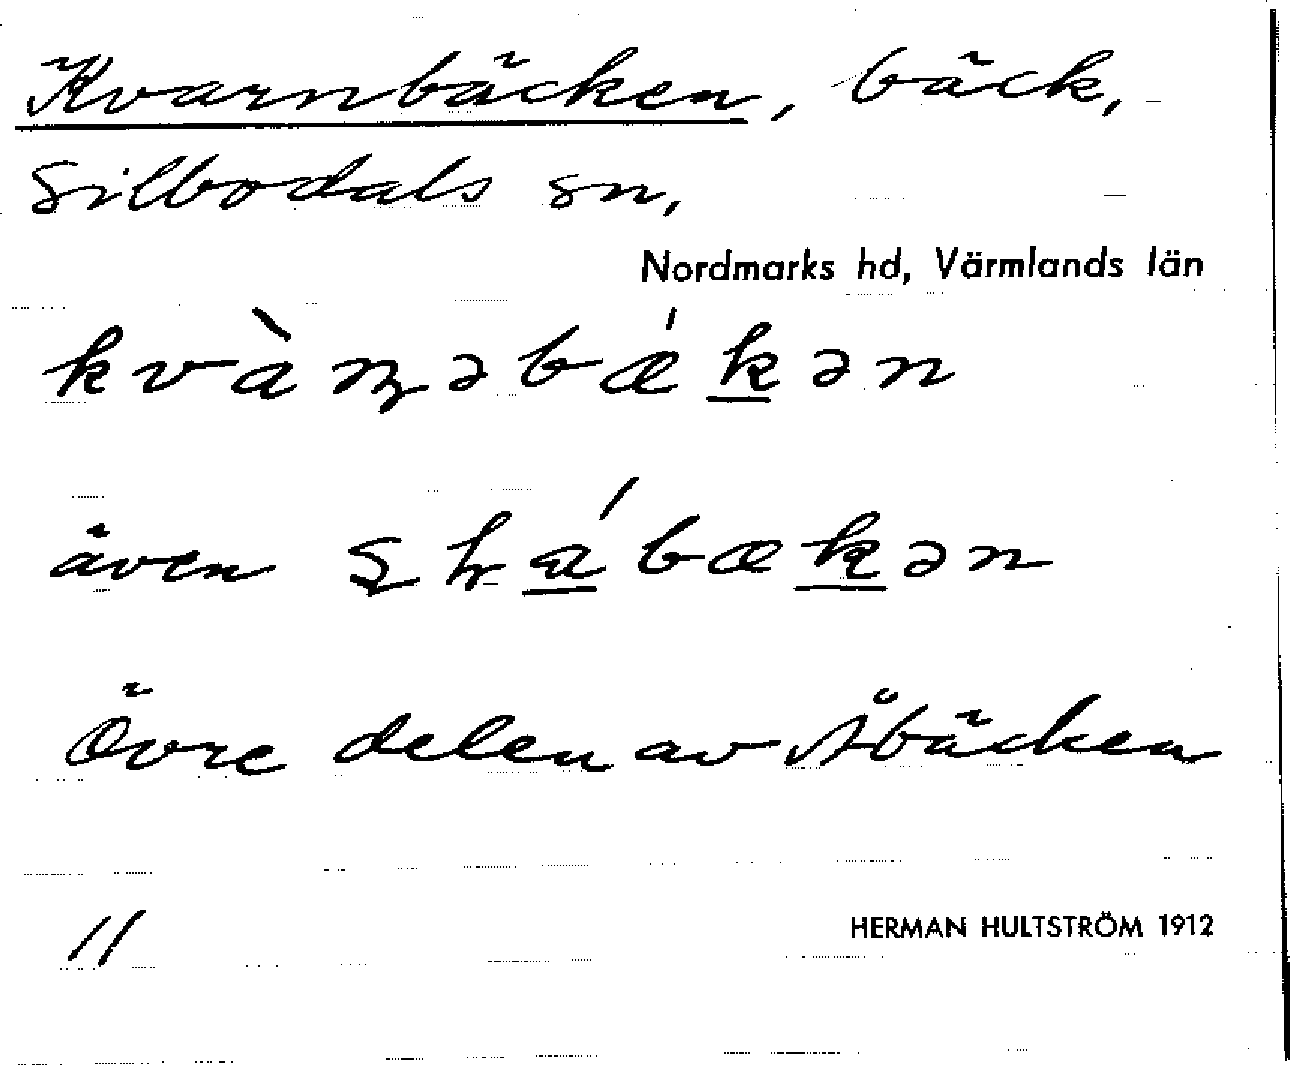 Kvarnbäcken, bäck,
Silbodals sn,
Nordmarks hd, Värmlands län
kvàɳəbǽkən
även
Övre delen av Åbäcken
11
HERMAN HULTSTRÖM 1912